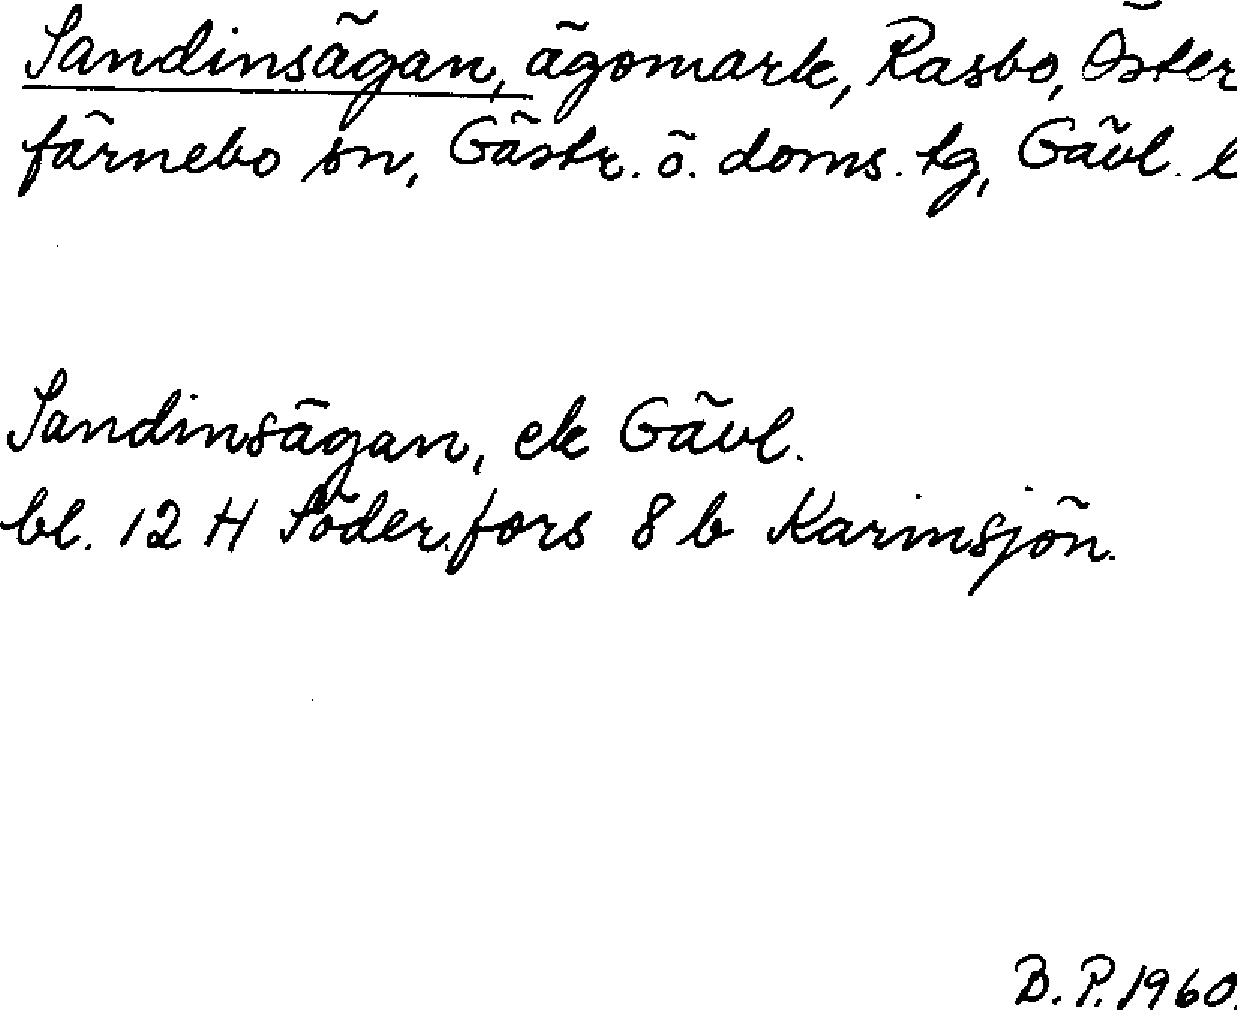 Sandinsägan, ägomark, Rasbo, Öster
färnebo sn, Gästr. ö. doms. tg, Gävl. l
Sandinsägan, ek Gävl.
bl. 12 H Söderfors 8 b Karinsjön.
B. P. 1960.